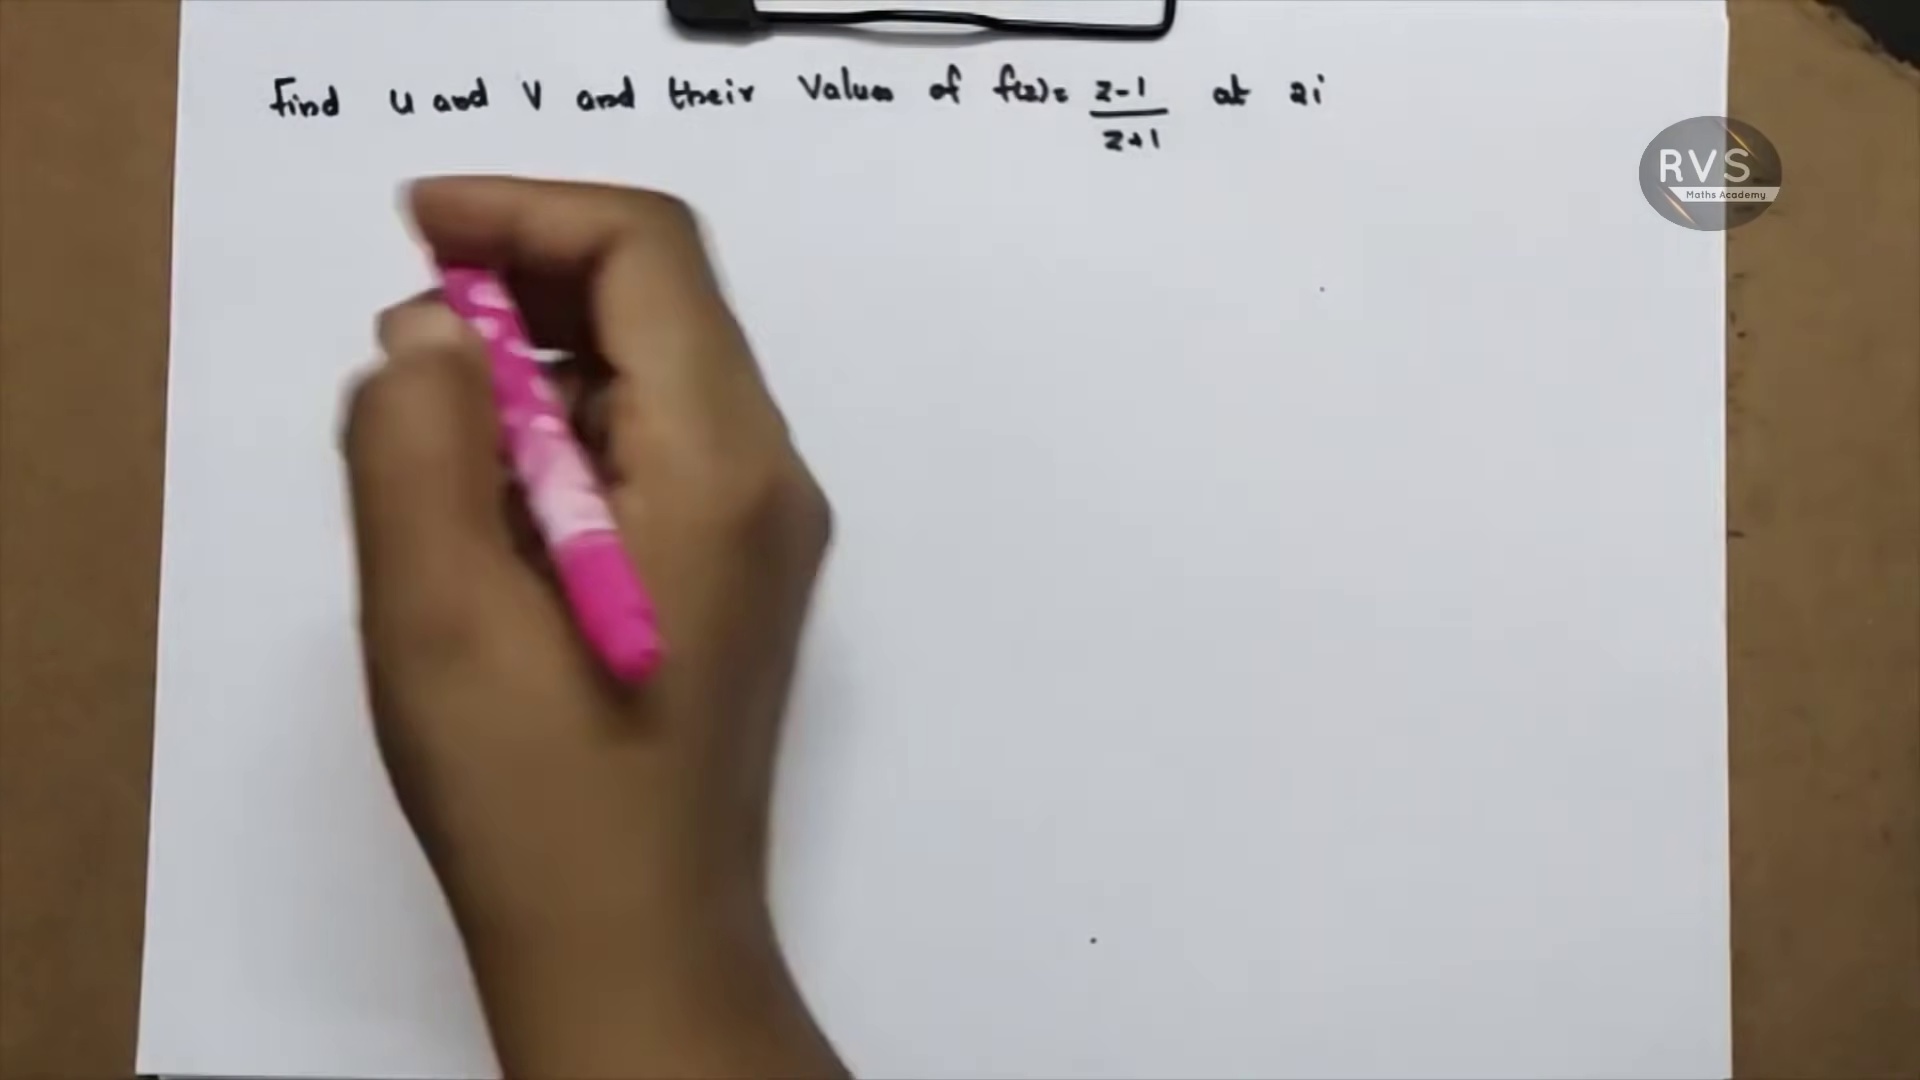 Find u and v and their values of f(z) = z-1 / z+1 at 2i
RVS
Maths Academy